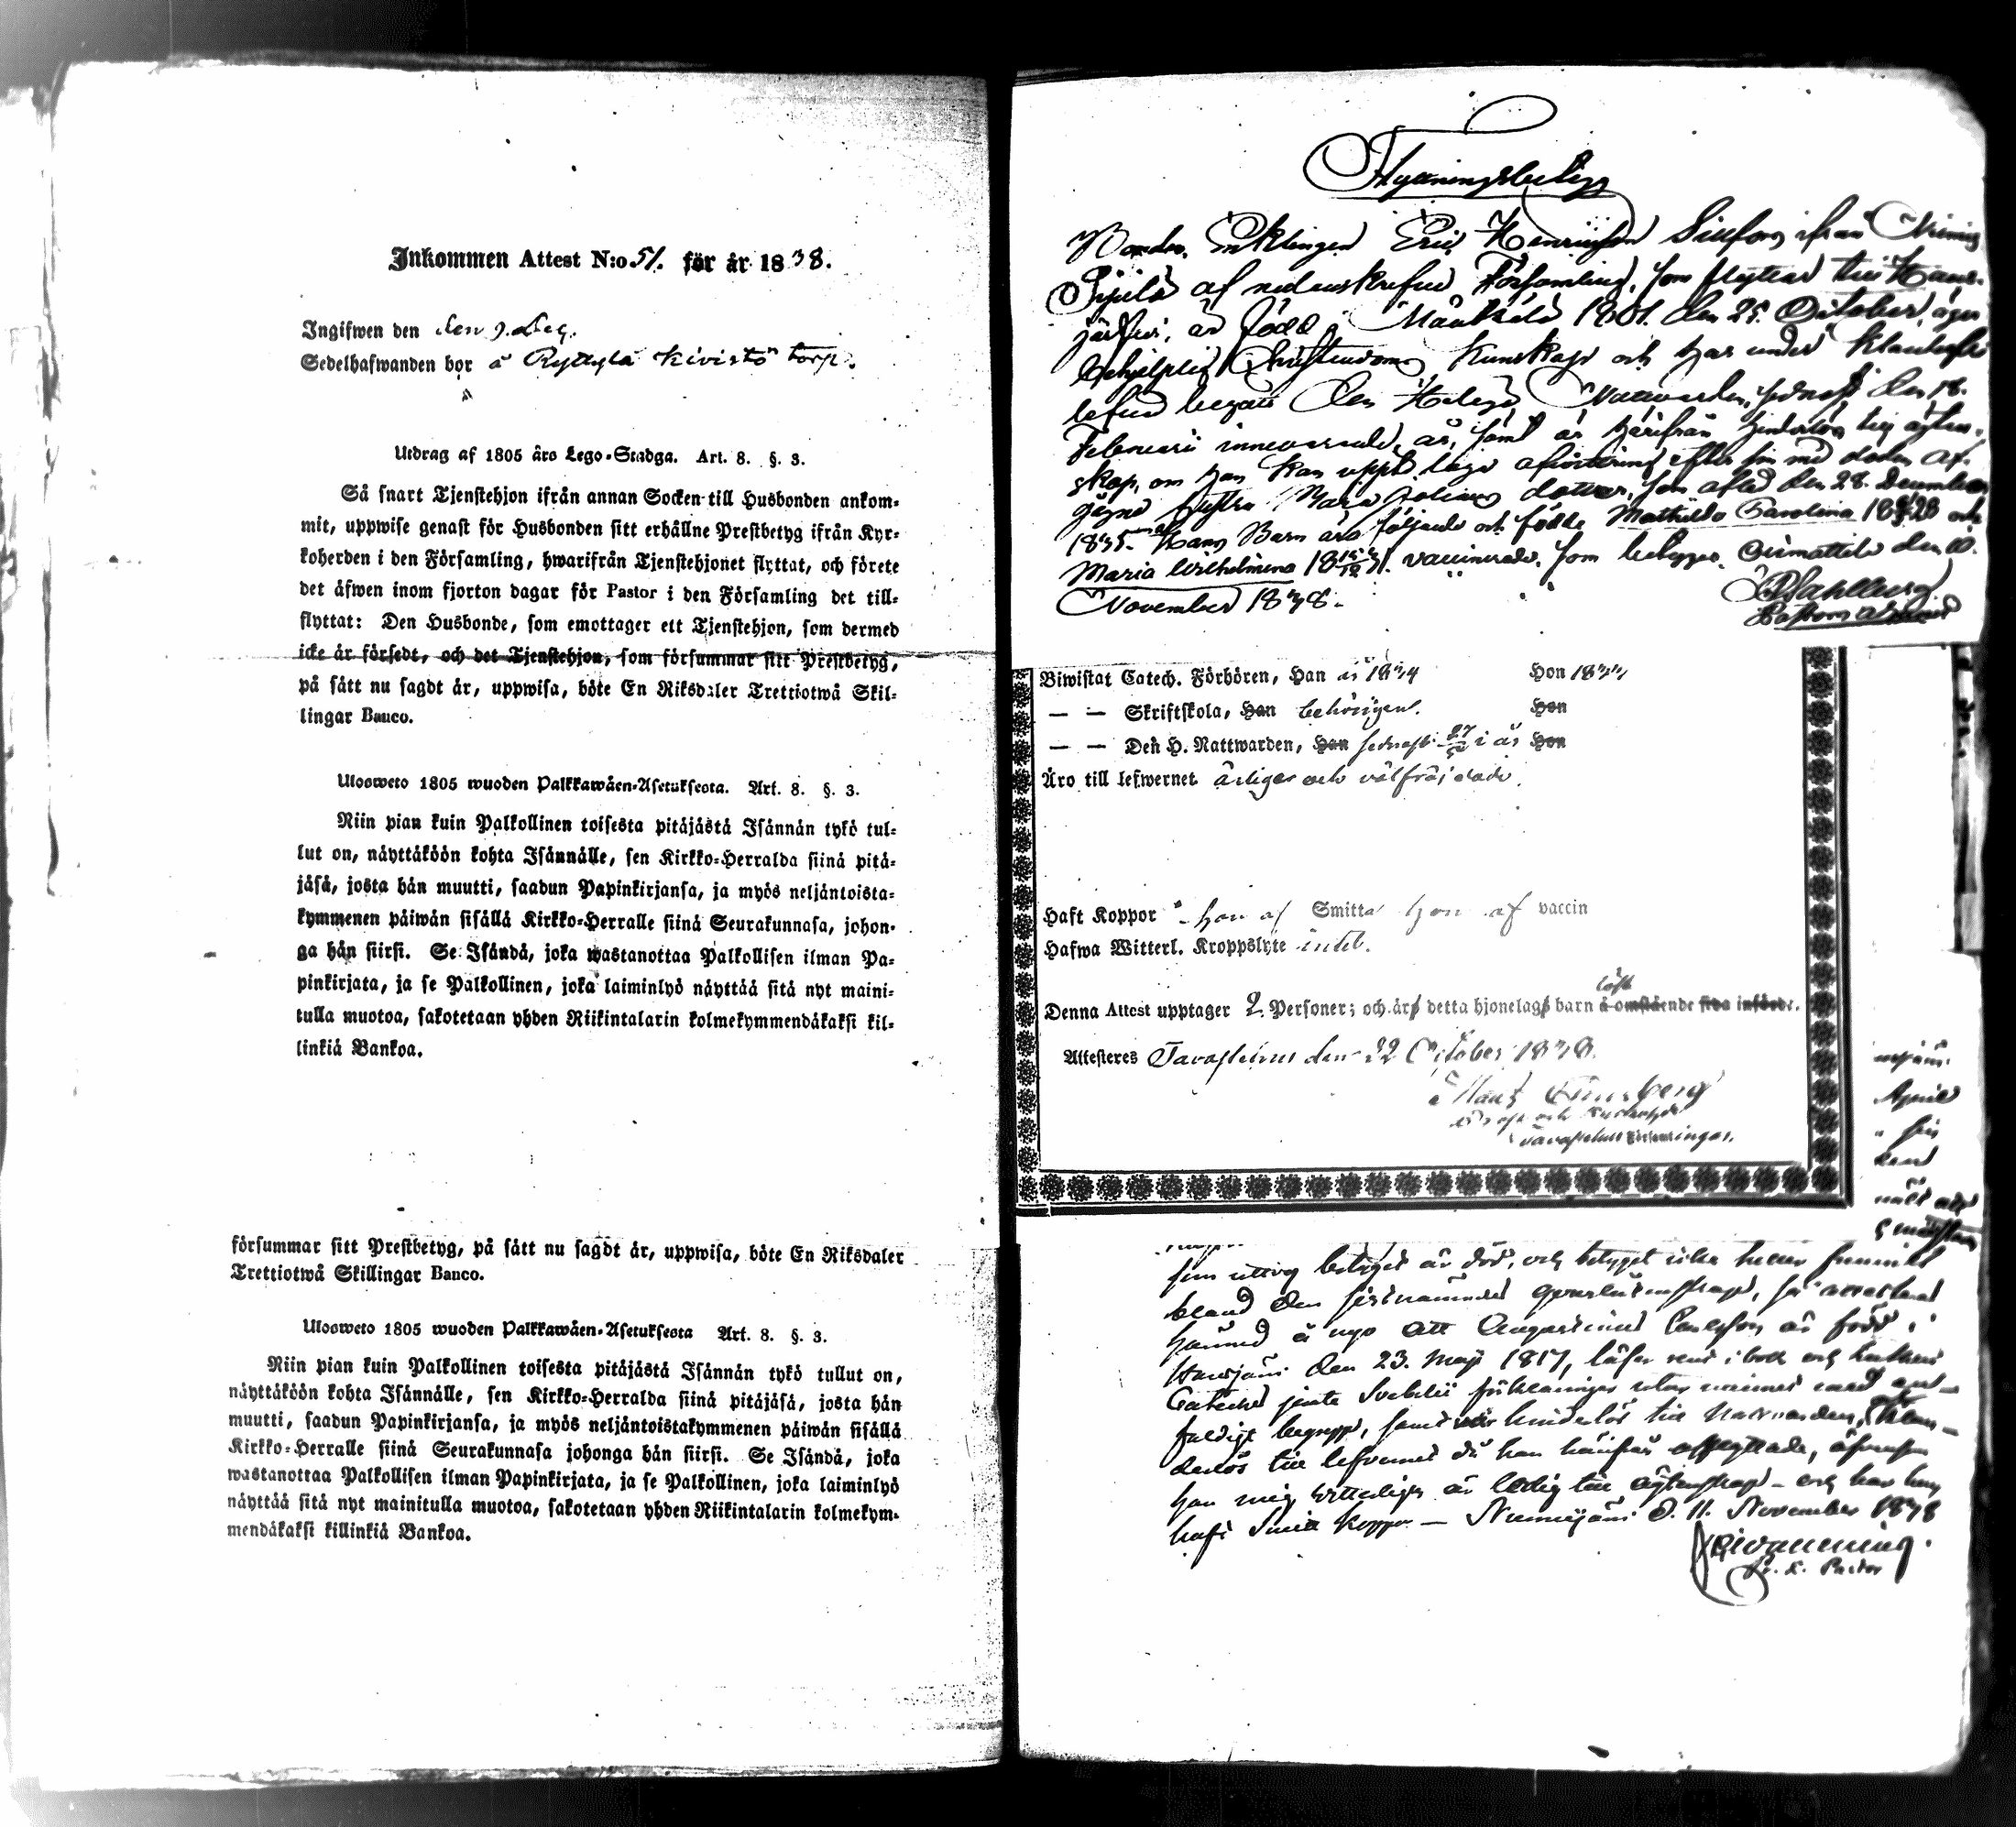 Inkommen Attest N:o 51. för år 1838.
Ingifwen den den 9. Dec.
Sedelhafwanden bor å Ryttylä Kivistö torp.
Utdrag af 1805 åro Lego-Stadga. Art. 8. §. 3.
Så snart Tjenstehjon ifrån annan Socken till Husbonden ankom-
mit, uppwise genast för Husbonden sitt erhållne Prestbetyg ifrån Kyr-
koherden i den Församling, hwarifrån Tjenstehjonet flyttat, och förete
det äfwen inom fjorton dagar för Pastor i den Församling det till-
flyttat: Den Husbonde, som emottager ett Tjenstehjon, som dermed
icke är försedt, och det Tjenstehjon, som försummar sitt Prestbetyg,
på sätt nu sagdt är, uppwisa, böte En Riksdaler Trettiotwå Skil-
lingar Banco.
Ulosweto 1805 wuoden Palkkawäen-Asetuksesta. Art. 8. §. 3.
Niin pian kuin Palkollinen toisesta pitäjästä Isännän tykö tul-
lut on, näyttäköön kohta Isännälle, sen Kirkko-Herralda siinä pitä-
jäsä, josta hän muutti, saadun Papinkirjansa, ja myös neljäntoista-
kymmenen päiwän sisällä Kirkko-Herralle siinä Seurakunnasa, johon-
ga hän siirsi. Se Isändä, joka wastanottaa Palkollisen ilman Pa-
pinkirjata, ja se Palkollinen, joka laiminlyö näyttää sitä nyt maini-
tulla muotoa, sakotetaan yhden Riikintalarin kolmekymmendäkaksi kil-
linkiä Bankoa.
försummar sitt Prestbetyg, på sätt nu sagdt är, uppwisa, böte En Riksdaler
Trettiotwå Skillingar Banco.
Ulosweto 1805 wuoden Palkkawäen-Asetuksesta Art. 8. §. 3.
Niin pian kuin Palkollinen toisesta pitäjästä Isännän tykö tullut on,
näyttäköön kohta Isännälle, sen Kirkko-Herralda siinä pitäjäsä, josta hän
muutti, saadun Papinkirjansa, ja myös neljäntoistakymmenen päiwän sisällä
Kirkko-Herralle siinä Seurakunnasa johonga hän siirsi. Se Isändä, joka
wastanottaa Palkollisen ilman Papinkirjata, ja se Palkollinen, joka laiminlyö
näyttää sitä nyt mainitulla muotoa, sakotetaan yhden Riikintalarin kolmekym-
mendäkaksi killinkiä Bankoa.
Flyttningsbetyg
Bonden Enklingen Eric Henricsson ifrån
af nedanskrefne Församling, som flyttar till Haus-
järfvi, är född i Mäntsälä 1801. den 25. October, äger
Christendoms Kunskap och har under
lefnad begått den Heliga Nattvarden, sednast den 18.
Februarii innevarande år, samt är härifrån hinderlös till ägten-
skap, om han kan efter sin med döden af-
gågne hustru Maria dotter, som afled den 28. December
1835. Hans Barn äro följande och födde Mathilda Carolina 28 och
Maria Wilhelmina vaccinerade. Som betygar den 10.
November 1838.
Biwistat Catech. Förhören, Han år 1834 Hon 1834
— — Skriftskola, Han behörigen. Hon
— — Den H. Nattwarden, Han sednast i år Hon
Äro till lefwernet ärliga och välfräjdade.
Haft Koppor han af Smitta hon af vaccin
Hafwa Witterl. Kroppslyte intet.
Denna Attest upptager 2 Personer; och är detta hjonelag barn löst å omstående sida införde.
Attesteres Tavastehus den 22 October 1838.
Tavastehus Församlingar.
April
som utgav betyget är död, och betyget icke heller funnits
bland den sistnämndes qvarlåtenskap, så attesteras
härmed å nyo att är född i
Hausjärvi den 23. Maji 1817, läser rent i bok och Lutheri
Cateches jemte Svebelii förklaringar utan minnet med
faldigt begrepp, samt var hinderlös till Nattvarden,
derlös till lefvernet då han härifrån afflyttade, äfvensom
han mig vitterligen är ledig till ägtenskap – och har han
haft Koppor — d. 11. November 1838
Pastor